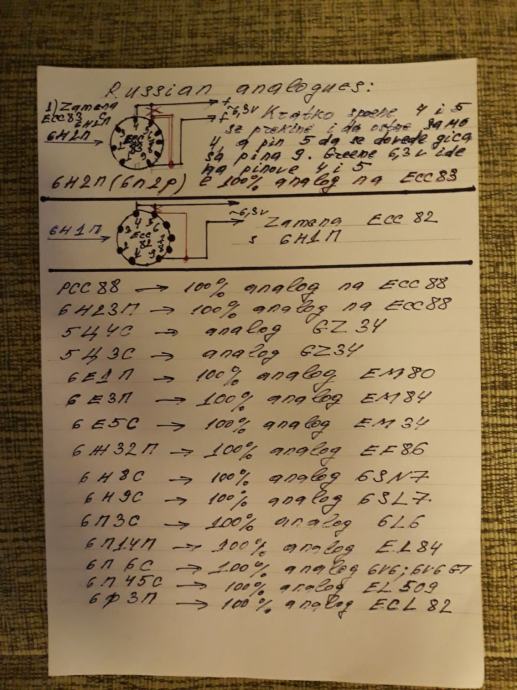 Russian analogues:
1) Zamena
ECC83 s
6Н2П
6Н2П
~6,3v
Kratko spoene 4 i 5
se prekine i da ostne samo
4, a pin 5 da se dovede gica
sa pina 9. Greene 6,3v ide
na pinove 4 i 5
6Н2П (6n2p) e 100% analog na ECC83
6Н1П
4 5
ECC
82
9
~6,3v
Zamena ECC 82
s 6Н1П
PCC88 → 100% analog na ECC88
6Н23П → 100% analog na ECC88
5Ц4С → analog GZ34
5Ц3С → analog GZ34
6Е1П → 100% analog EM80
6Е3П → 100% analog EM84
6Е5С → 100% analog EM34
6Ж32П → 100% analog EF86
6Н8С → 100% analog 6SN7
6Н9С → 100% analog 6SL7
6П3С → 100% analog 6L6
6П14П → 100% analog EL84
6П6С → 100% analog 6V6; 6V6 GT
6П45С → 100% analog EL509
6Ф3П → 100% analog ECL82